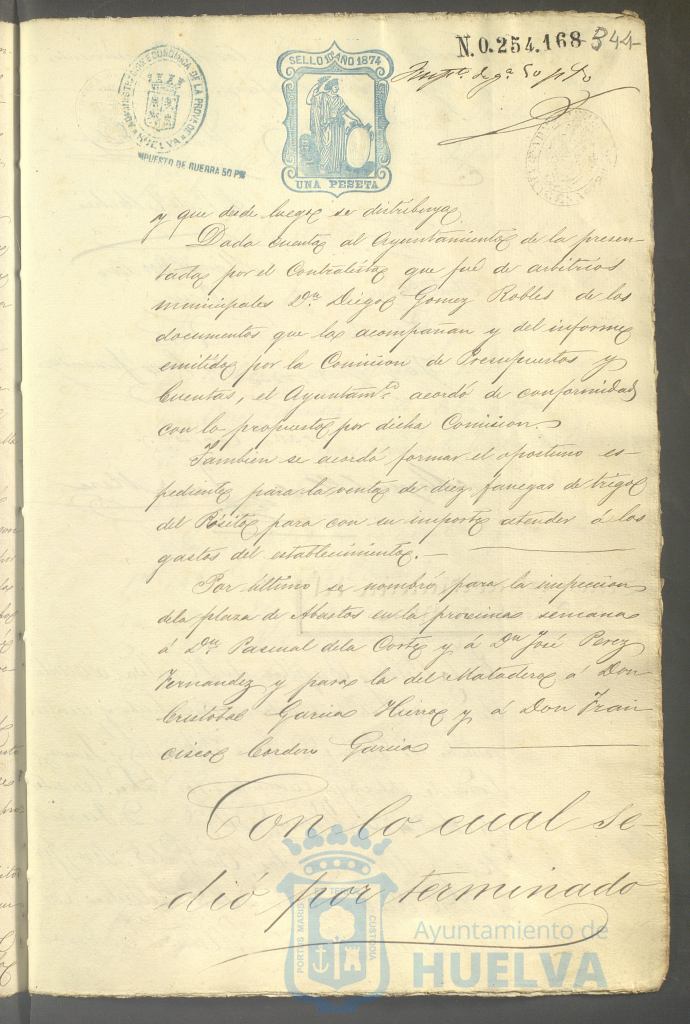 N.0.254.168
344
SELLO 10º AÑO 1874
UNA PESETA
ADMINISTRACION ECONOMICA DE LA PROVª DE HUELVA
IMPUESTO DE GUERRA 50 PS
Impto. de ga. 50 pS
y que desde luego se distribuya.
Dada cuenta al Ayuntamiento de la presen-
tada por el Contratista que fué de arbitrios
municipales Dn. Diego Gomez Robles de los
documentos que la acompañan y del informe
emitido por la Comision de Presupuestos y
Cuentas, el Ayuntamto. acordó de conformidad
con lo propuesto por dicha Comision.
Tambien se acordó formar el oportuno es-
pediente para la venta de diez fanegas de trigo
del Pósito para con su importe atender á los
gastos del establecimiento.
Por último se nombró para la inspeccion
dela plaza de Abastos en la proxima semana
á Dn. Pascual dela Corte y á Dn José Perez
Fernandez y para la del Matadero á Don
Cristobal Garcia Hierro y á Don Fran
cisco Cordero Garcia
Con lo cual se
dió por terminado
PORTUS MARIS ET TERRE CUSTODIA
Ayuntamiento de
HUELVA